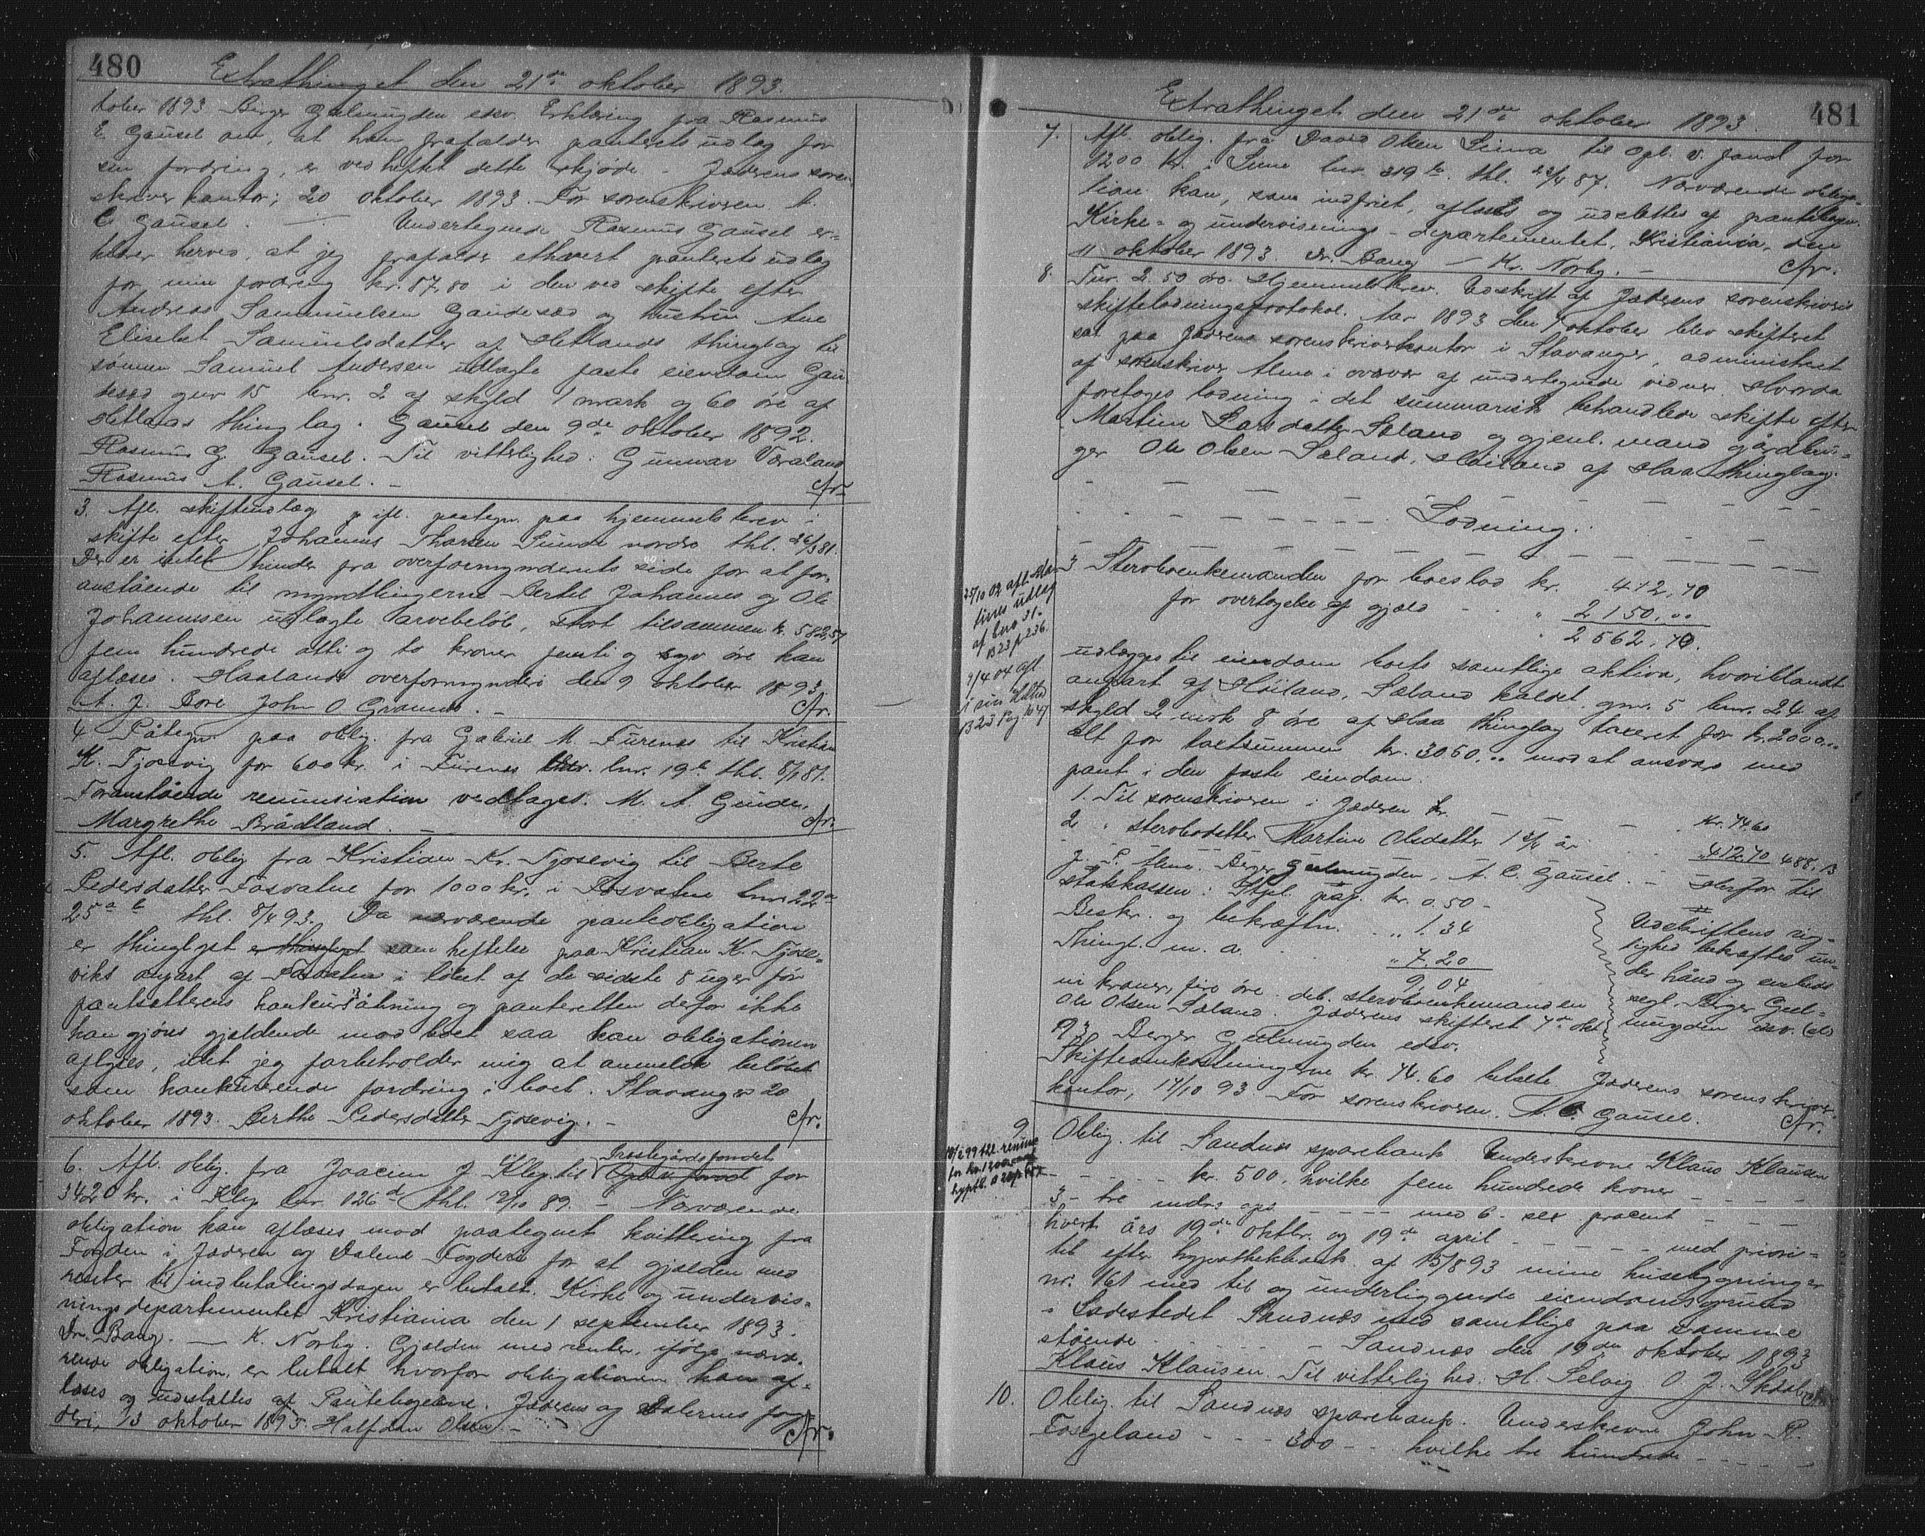 480
Extrathinget den 21de oktober 1893.
tober 1893. Berger Geelmuyden edsv. Erklæring fra Rasmus
E. Gausel om, at han frafalder panterets udlæg for
sin fordring, er vedheftet dette skjøde. Jæderens soren-
skriverkontor, 20 oktober 1893. For sorenskriveren A.
C. Gausel. — Undertegnede Rasmus Gausel er-
klærer herved, at jeg frafalder ethvert panterets udlæg
for min fordring kr. 87.80 i den ved skifte efter
Andreas Sammuelsen Gandesæd og hustru Ane
Elisebet Samuelsdatter af Hetlands thinglag til
sønnen Samuel Andersen udlagte faste eiendom Gan
desæd gnr 15 bnr. 2 af skyld 1 mark og 60 øre af
Hetlands thinglag. Gausel den 9de oktober 1892.
Rasmus G. Gausel. Til vitterlighed: Gunvar Væraland
Rasmus A. Gausel. — cfr.
3. Afl. skifteudlæg p ifl. paategn. paa hjemmelsbrev i
skifte efter Johannes Tharsen Sunde nordre thl. 26/3 81.
Der er intet hinder fra overformynderiets side for at for-
anstående til myndlingerne Bertel Johannes og Ole
Johannesen udlagte arvebeløb, stort tilsammen kr. 582,57
fem hundrede otti og to kroner femti og syv øre kan
aflæses. Haalands overformynderi den 9 oktober 1893.
A. J. Dore John O Grannes. — cfr.
4. Påtegn. paa oblig. fra Gabriel M. Furenes til Kristian
K. Tjosevig for 600 kr. i Furenes bnr. 19b thl. 8/1 87.
Foranstående renunsiation vedtages. M. A. Grude.
Margrethe Brådland. — cfr.
5. Afl. oblig fra Kristian Kr. Tjosevig til Berte
Pedersdatter Fosvatne for 1000 kr. i Fosvatne bnr. 22a
25a b thl. 8/4 93. Da nærværende panteobligation
er thinglyst er thinglyst som heftelse paa Kristian K. Tjose-
viks anpart af Fosvatne i løbet af de sidste 8 uger før
pantsætterens konkursåbning og panteretten derfor ikke
kan gjøres gjældende mod boet saa kan obligationen
aflyses, idet jeg forbeholder mig at anmelde beløbet
som konkurrerende fordring i boet. Stavanger 20
oktober 1893. Berthe Pedersdatter Tjosevig. — cfr.
6. Afl. oblig. fra Joacim J. Klep til Præstegårdsfondet for
3420 kr. i Klep bnr 126d thl. 19/10 89. — Nærværende
obligation kan aflæses mod paategnet kvittering fra
Fogden i Jæderen og Dalene Fogderi for at gjælden med
renter til indbetalingsdagen er betalt. Kirke og undervis-
ningsdepartementet Kristiania den 1 september 1893.
Dr. Bang. — K. Norby. Gjælden med renter, ifølge nærvæ-
rende obligation, er betalt hvorfor obligationen kan af-
læses og udslettes af Pantebøgerne. Jæderens og Dalernes fog
deri, 13 oktober 1893. Halfdan Olsen. — cfr.
481
Extrathinget den 21de oktober 1893.
7. Afl. oblig. fra David Olsen Sima til Opl. v. fond for
1200 kr. i Sime bnr. 319b thl. 22/4 87. Nærværende obliga-
tion kan, som indfriet, aflæses og udslettes af pantebogen.
Kirke- og undervisnings-departementet, Kristiania, den
11 oktober 1893. Dr. Bang — Kr. Norby. — cfr.
8. Tur. 2.50 øre. Hjemmelsbrev. Udskrift af Jæderens sorenskriveris
skiftelodningsprotokol. Aar 1893 den 7 oktober blev skifteret
sat paa Jæderens sorenskriverkontor i Stavanger, administreret
af sorenskriver Aime i overvær af undertegnede vidner. Hvorda
foretoges lodning i det summarisk behandlede skifte efter
Martine Larsdatter Sæland og gjenl. mand gårdbru-
ger Ole Olsen Sæland, Høiland af Haa thinglag.
Lodning.
25/10 02 afl. Mar
tines udlæg
af bno 31.
B 23 p 236.
3 Sterboenkemanden for boeslod kr. 412,70
for overtagelse af gjæld " 2150,00
" 2562,70.
9/4 04 afl
B 23 Pag 647
udlægges til eiendom boets samtlige aktiva, hvoriblandt
anpart af Høiland, Sæland kaldet gnr. 5 bnr. 24 af
skyld 2 mark 8 øre af Haa thinglag taxeret for kr. 2000,..
alt for boetsummen kr. 3050... mod at ansvare med
pant i den faste eiendom.
1. Til sorenskriveren i Jæderen kr. kr. 74.60
2 " sterbodatter Martine Olsdatter 1 3/4 år " 412,70 488,13
J. S. Aime. Berger Geelmuyden, A. C. Gausel. — Herfor til
statskassen: Stpl. pap. kr. 0.50 —
Beskr. og bekræftn. „ 1.34
Thingl. m. a. " 7.20
9.04
ni kroner, fire øre. deb. sterboenkemanden
Ole Olsen Sæland. Jæderens skifteret 7de okt
93 Berger Geelmuyden edsv.
Udskriftens rig-
tighed bekræftes un-
der hånd og embeds
segl. Berger Geel-
muyden edsv. (LS)
Skifteomkostningerne kr. 74.60 betalte. Jæderens sorenskriver-
kontor, 17/10 93 For sorenskriveren. A. C. Gausel. cfr.
9. Oblig. til Sandnes sparebank Underskrevne Klaus Klausen
kr. 500, hvilke fem hundrede kroner
3 - tre mdrs. ops. med 6 - sex procent
hvert års 19de oktbr. og 19de april med priori-
tet efter hypothekbank af 15/8 93 mine husebygninger
nr. 161 med til og underliggende eiendomsgrund
i Ladestedet Sandnæs med samtlige paa samme
stående Sandnæs den 19de oktober 1893
Klaus Klausen Til vitterlighed. H. Selvig O. J. Skadberg
10. Oblig. til Sandnæs sparebank. Underskrevne John P.
Fosgeland - - - 300 - - hvilke tre hundrede